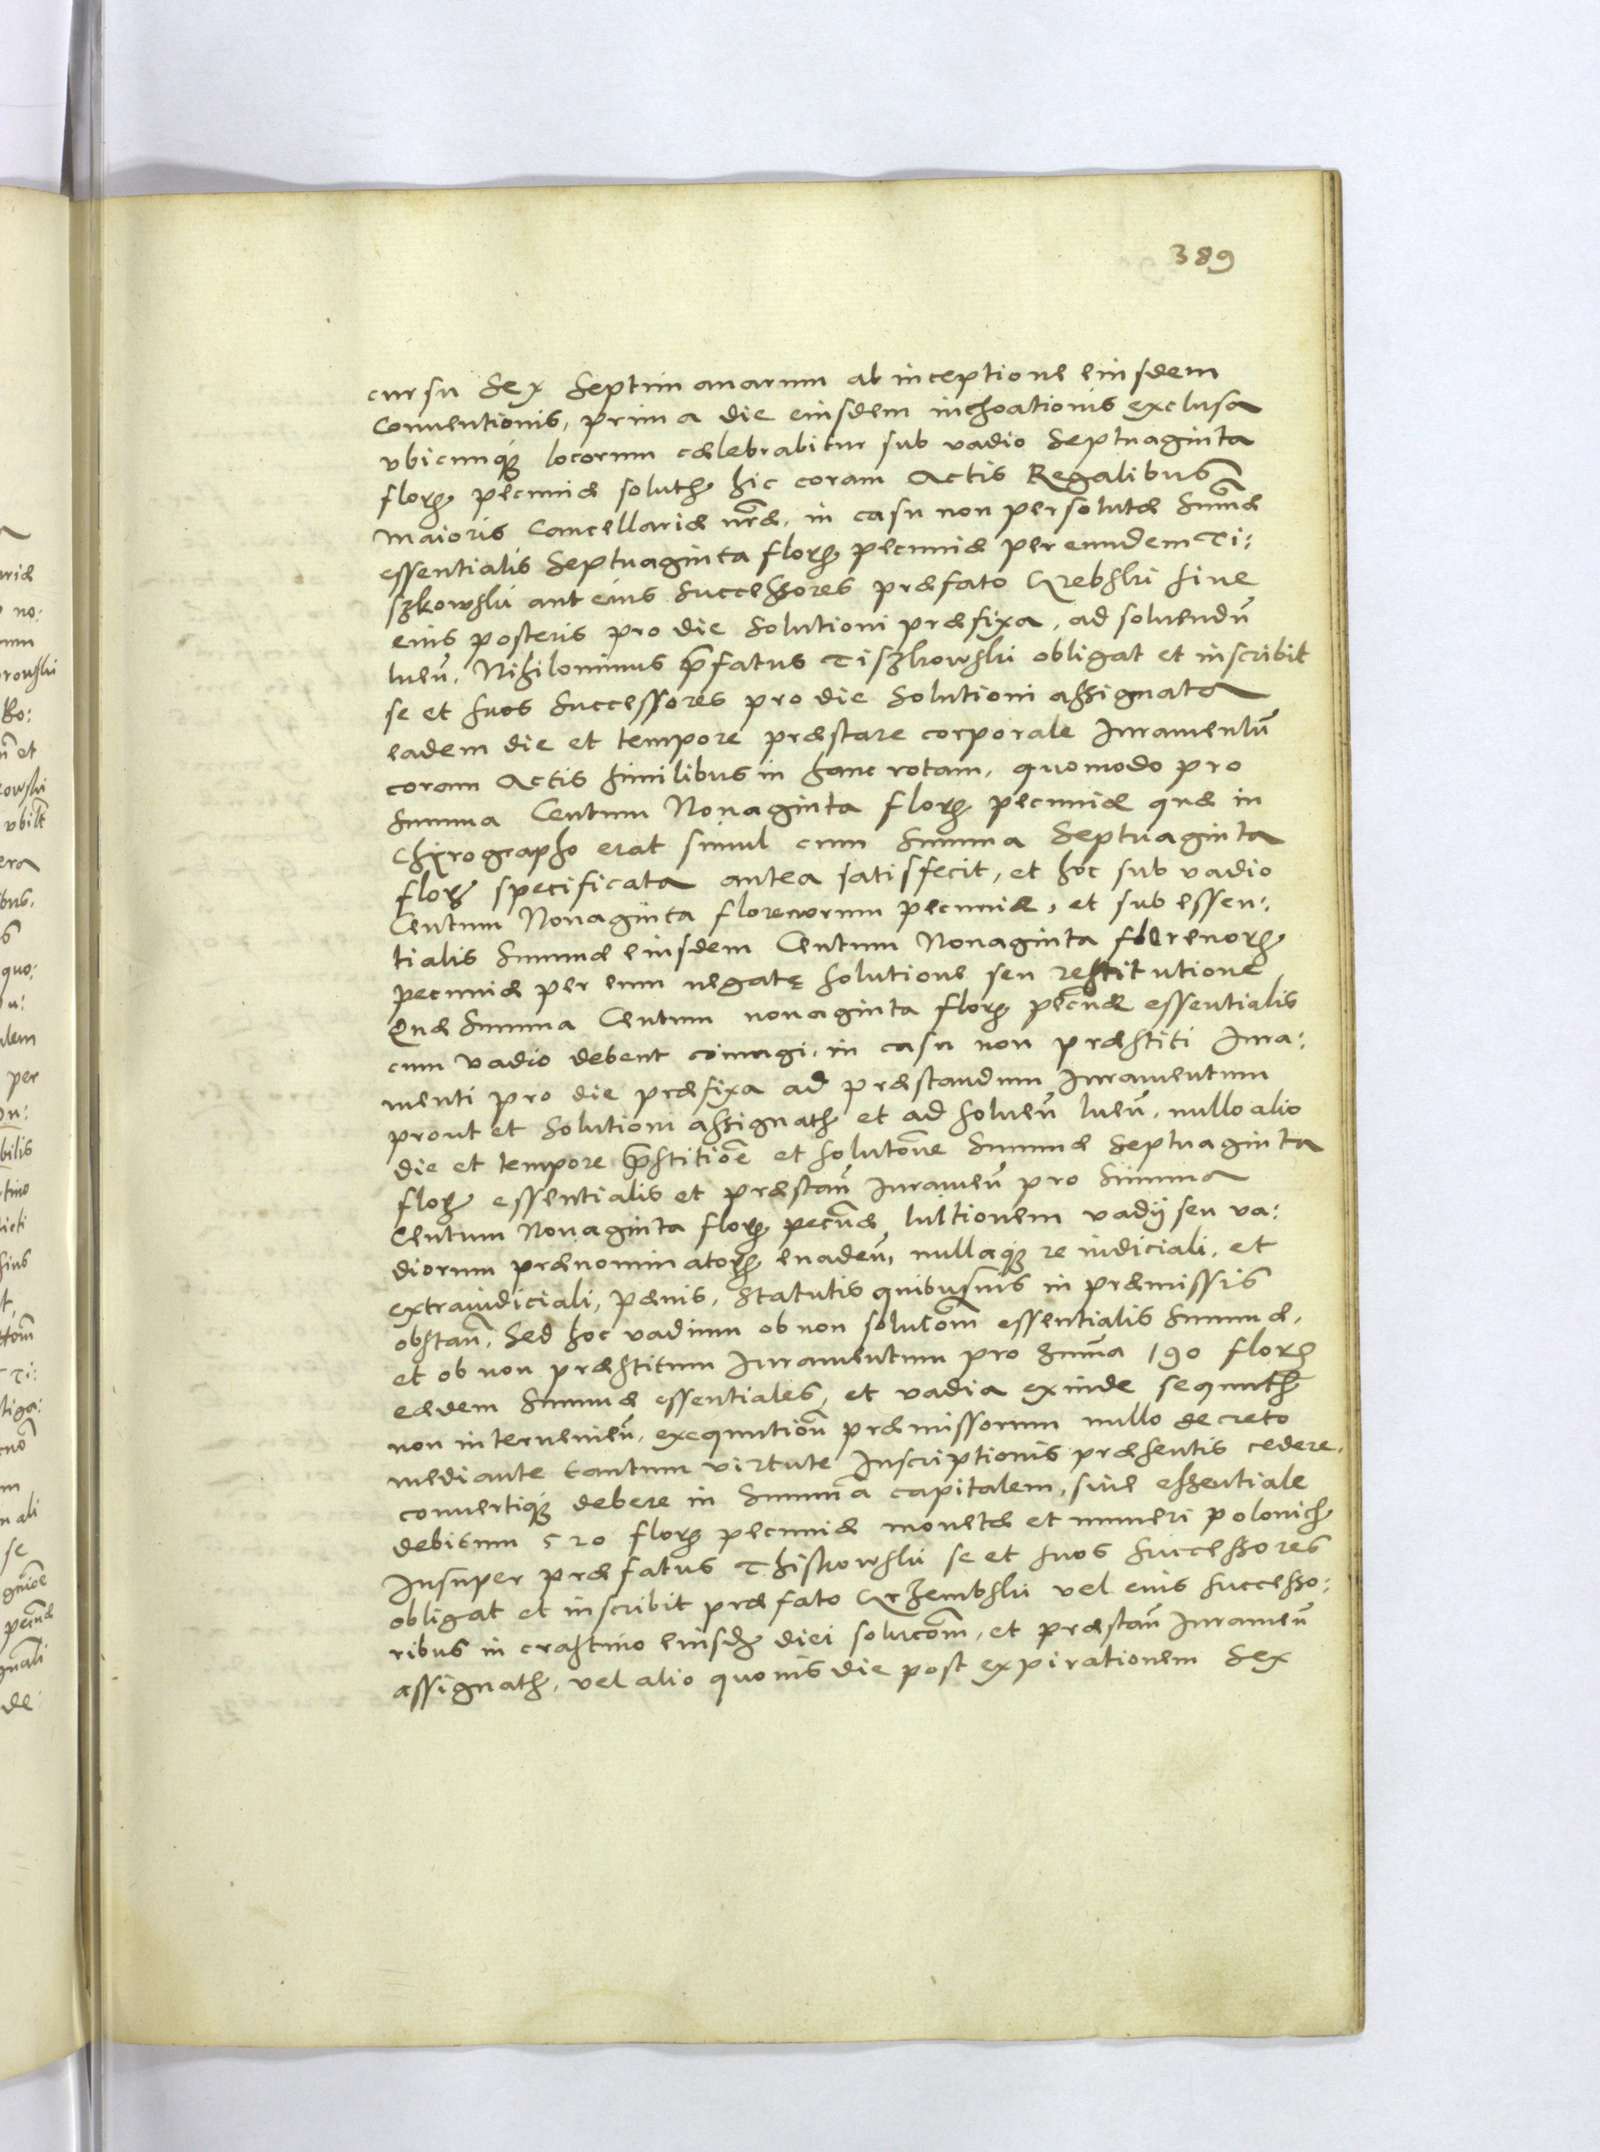 389
cursu Sex Septimanarum ab inceptione eiusdem
Conuentionis, prima die eiusdem inchoationis exclusa
vbicunq₃ locorum cælebrabitur sub vadio Septuaginta
floř pecuniæ soluth hic coram Actis Regalibus
Maioris Cancellariæ nr̃æ, in casu non persolutæ Sum̃æ
essentialis Septuaginta floř pecuniæ per eundem Ti:
szkowski aut eius Successores præfato Krebski siue
eius posteris pro die Solutioni præfixa, ad soluendũ
lueñ. Nihilominus p̃fatus Tiszkowski obligat et inscribit
se et suos Successores pro die Solutioni assignata
eadem die et tempore præstare corporale Iuramentũ
coram Actis similibus in hanc rotam, quomodo pro
Summa Centum Nonaginta floř pecuniæ quæ in
Chirographo erat simul cum Summa Septuaginta
floř specificata antea satisfecit, et hoc sub vadio
Centum Nonaginta florenorum pecuniæ, et sub essen:
tialis Summæ eiusdem Centum Nonaginta florenoř
pecuniæ per eum negatę solutione seu restitutione
Quæ Summa Centum nonaginta floř pecũæ essentialis
cum vadio debent coniungi, in casu non præstiti Iura:
menti pro die præfixa ad præstandum Iuramentum
prout et Solutioni assignath et ad solueñ lueñ, nullo alio
die et tempore p̃stitiõe et solutõne Summæ Septuaginta
floř essentialis et præstañ Iurameñ pro Summa
Centum Nonaginta floř pecũæ luitionem vadij seu va:
diorum prænominatoř euadeñ, nullaq₃ re iudiciali, et
extraiudiciali, pænis, Statutis quibusuis in præmissis
obstañ. Sed hoc vadium ob non solutõm essentialis Summæ,
et ob non præstitum Iuramentum pro Sum̃a 190 floř
eædem Summæ essentiales, et vadia exinde sequuth
non interuenieñ, exequutioñ præmissorum nullo decreto
mediante tantum virtute Inscriptionis præsentis cedere,
conuertiq₃ debere in Summ̃a capitalem, siue essentiale
debitum 520 floř pecuniæ monetæ et numeri polonich
Insuper præfatus Thiskowski se et suos Successores
obligat et inscribit præfato Krzembski vel eius Successo:
ribus in crastino eiusd̃ diei solutõm, et præstañ Iurameñ
assignath, vel alio quouis die post expirationem Sex